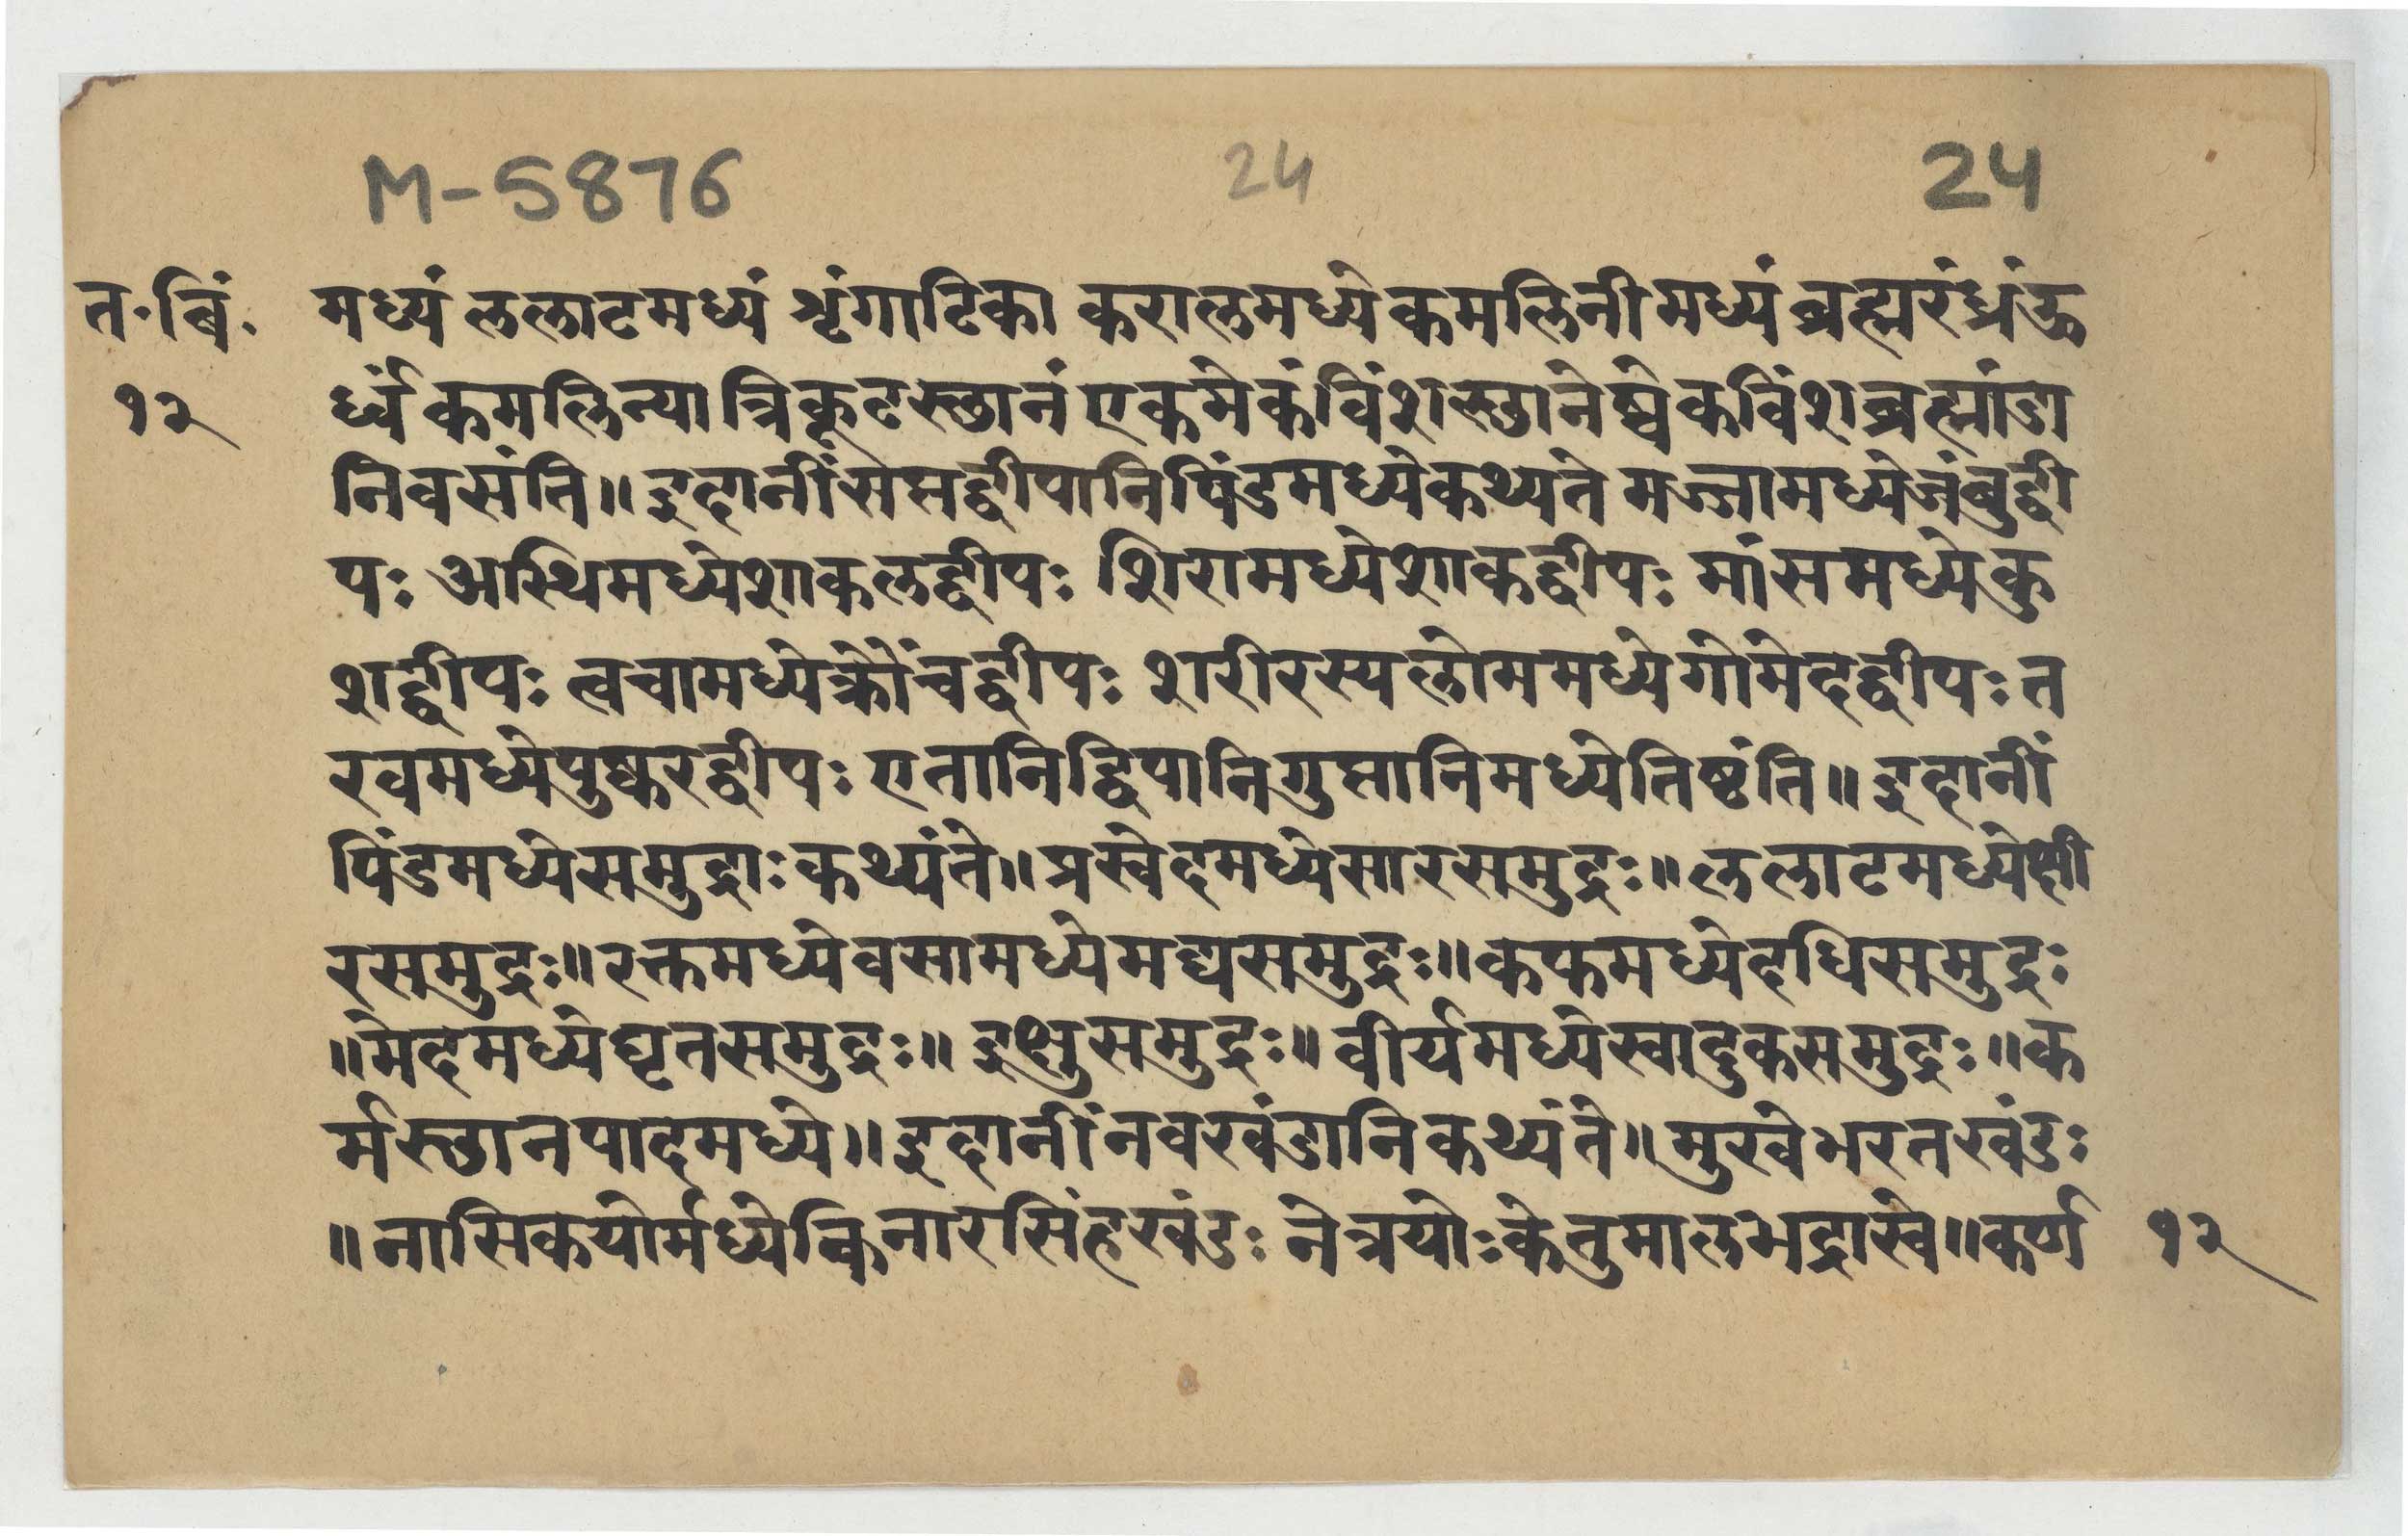 M-5876 24 24
त॰बिं॰ मध्यं ललाटमध्यं शृंगाटिका करालमध्ये कमलिनीमध्यं ब्रह्मरंध्रंऊ
१२ र्ध्वं कमलिन्या त्रिकूटस्छानं एकमेकंविंशस्छानेष्वेकविंशब्रह्मांडा
निवसंति॥ इदानींसप्तद्वीपानिपिंडमध्येकथ्यते मज्जामध्येजंबुद्वी
पः अस्थिमध्येशाकलद्वीपः शिरामध्येशाकद्वीपः मांसमध्येकु
शद्वीपः त्वचामध्येक्रौंचद्वीपः शरीरस्यलोममध्येगोमेदद्वीपः न
खमध्येपुष्करद्वीपः एतानिद्विपानिगुप्तानिमध्येतिष्टंति॥ इदानीं
पिंडमध्येसमुद्राःकथ्यंते॥ प्रस्वेदमध्येसारसमुद्रः॥ ललाटमध्येक्षी
रसमुद्रः॥ रक्तमध्येवसामध्येमद्यसमुद्रः॥ कफमध्येदधिसमुद्रः
॥मेदमध्येघृतसमुद्रः॥ इक्षुसमुद्रः॥ वीर्यमध्येस्वादुकसमुद्रः॥ क
र्मस्छानपादमध्ये॥ इदानींनवखंडानिकथ्यंते॥ मुखेभरतखंडः
॥ नासिकयोर्मध्येकिनारसिंहखंडः नेत्रयोःकेतुमालभद्रास्वे॥ कर्ण १२